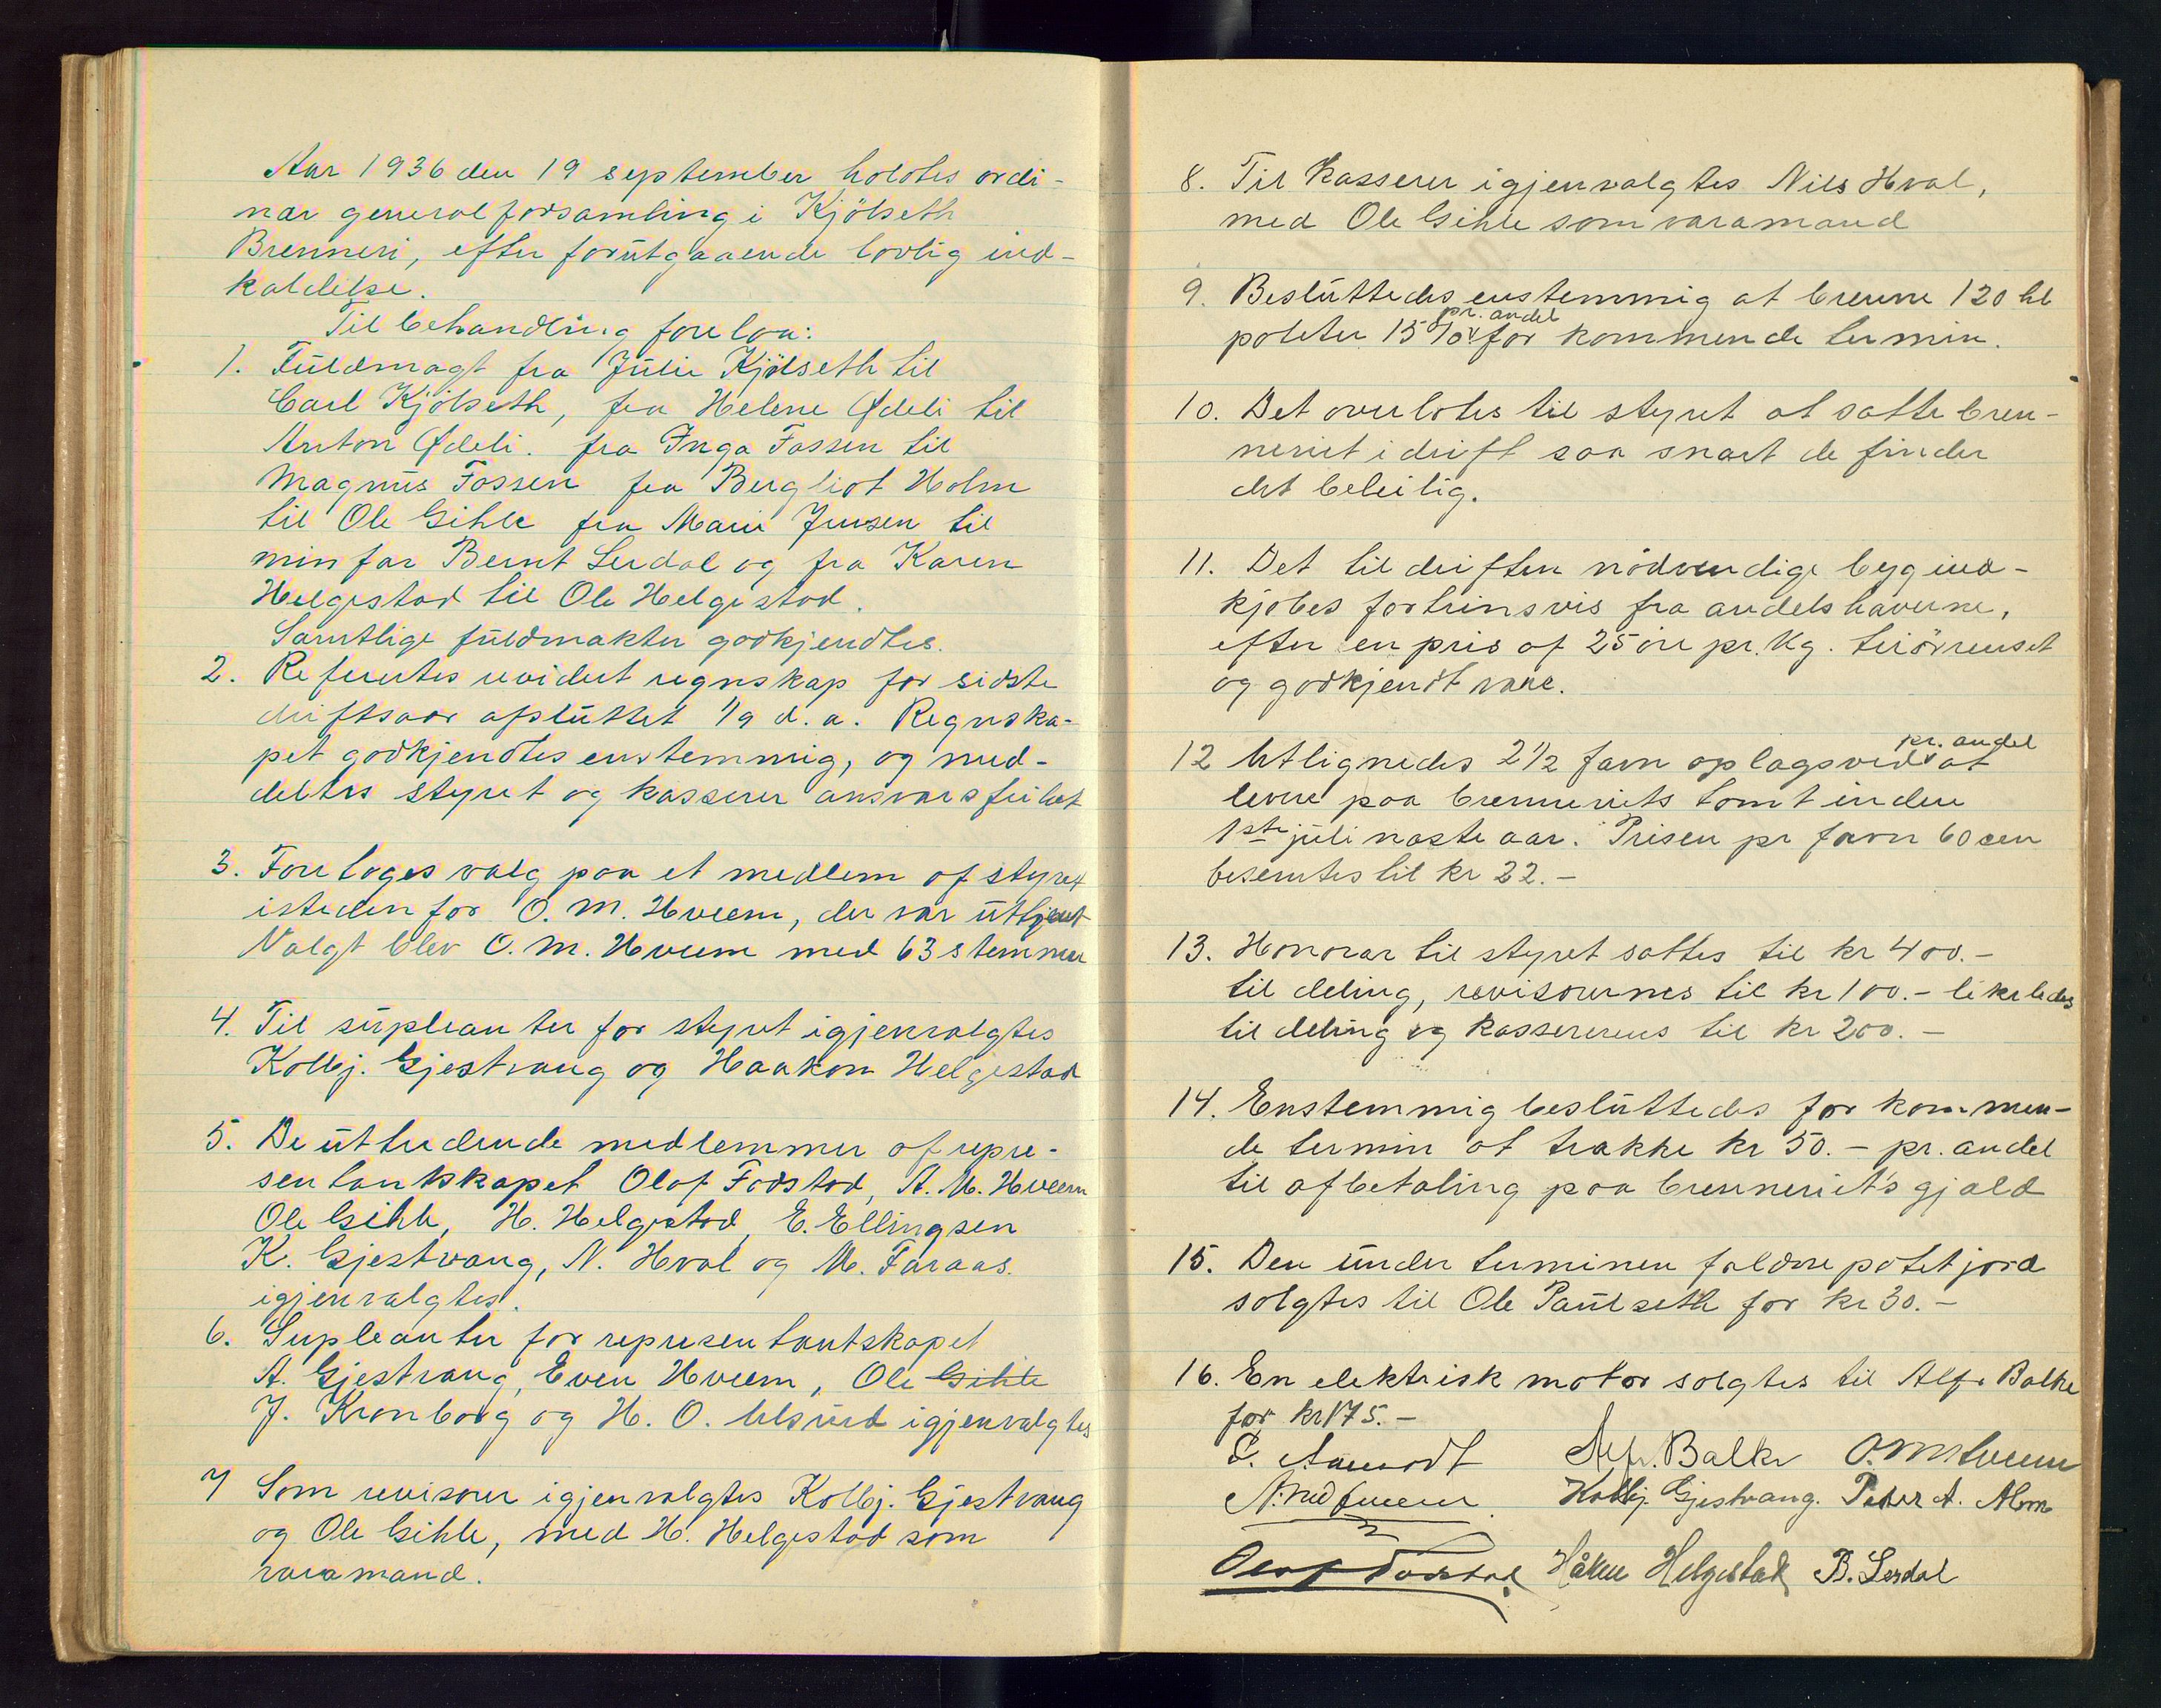 Aar 1936 den 19 september holdtes ordi-
nær generalforsamling i Kjölseth
Brenneri, efter forutgaaende lovlig ind-
kaldelse.
Til behandling forelaa:
1. Fuldmagt fra Julie Kjölseth til
Carl Kjölseth, fra Helene Ødeli til
Anton Ødeli. fra Inga Fossen til
Magnus Fossen fra Bergliot Holm
til Ole Gihle fra Marie Jensen til
min far Bernt Lerdal og fra Karen
Helgestad til Ole Helgestad.
Samtlige fuldmakter godkjendtes.
2. Refertes revidert regnskap for sidste
driftsaar avsluttet 1/9 d. a. Regnska-
pet godkjendtes enstemmig, og med-
deltes styret og kasserer ansvarsfrihet
3. Foretoges valg paa et medlem af styret
istedenfor O. M. Hveem, der var uttjent
Valgt blev O. M. Hveem med 63 stemmer
4. Til supleanter for styret igjenvalgtes
Kolbj. Gjestvang og Haakon Helgestad
5. De uttredende medlemmer af repre-
sentantskapet Olaf Fodstad, A. M. Hveem
Ole Gihle, H. Helgestad, E. Ellingsen
K. Gjestvang, N. Hval og M. Faraas.
igjenvalgtes.
6. Supleanter for representantskapet
A. Gjestvang, Even Hveem, Ole Gihle
J. Kronborg og H. O. Ulsrud igjenvalgtes
7 Som revisorer igjenvalgtes Kolbj. Gjestvang
og Ole Gihle, med H. Helgestad som
varamand.
8. Til Kasserer igjenvalgtes Nils Hval,
med Ole Gihle som varamand
9. Besluttedes enstemmig at brenne 120 hl
pr. andel
poteter 15% for kommende termin.
10. Det overlotes til styret at sætte bren-
neriet i drift saa snart de finder
det beleilig.
11. Det til driften nödvendige byg ind-
kjöbes fortrinsvis fra andelshaverne,
efter en pris af 25 öre pr. kg. tirörrenset
og godkjendt vare.
pr. andel
12 Utlignedes 2 1/2 favn oplagsved at
levere paa brenneriets tomt inden
1ste juli næste aar. Prisen pr favn 60 cen
bestemtes til kr 22.-
13. Honorar til styret sattes til kr 400.-
til deling, revisorernes til kr 100.- likeledes
til deling og Kassererens til kr 200.-
14. Enstemmig besluttedes for kommen-
de termin at trække kr 50.- pr. andel
til afbetaling paa brenneriets gjæld
15. Den under terminen faldne potetjord
solgtes til Ole Paulseth for kr 30.-
16. En elektrisk motor solgtes til Alfr Balke
for kr 175.-
Alfr. Balke O. M. Hveem
Kolbj. Gjestvang. Peter A. Alm
Olaf Fodstad Håken Helgestad B. Lerdal